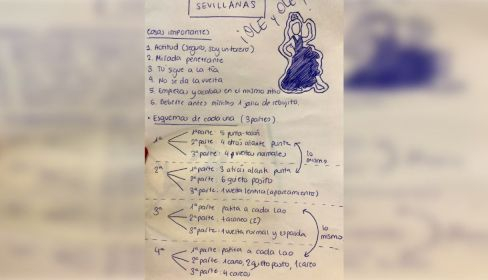 SEVILLANAS
¡OLE y OLE!
Cosas importantes
1. Actitud (seguro, soy un torero)
2. Mirada penetrante
3. Tú sigue a la tía
4. No se da la vuelta
5. Empiezas y acabas en el mismo sitio
6. Beberte antes mínimo 1 jarra de rebujito.
• Esquemas de cada una (3 partes)
1ª
1ª parte: 5 punta-talón
2ª parte: 4 atrás alante punta
3ª parte: 4 vueltas normales
lo mismo
2ª
1ª parte: 3 atrás alante punta
2ª parte: 6 quieto posito
3ª parte: 1 vuelta lentita (aparcamiento)
3ª
1ª parte: patita a cada lao
2ª parte: taconeo
3ª parte: 1 vuelta normal y espalda
lo mismo
4ª
1ª parte: patita a cada lao
2ª parte: 1 careo, 2 quieto posito, 1 careo
3ª parte: 4 careos